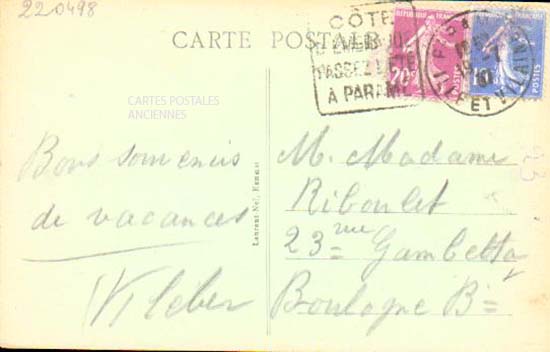 220498
CARTE POSTALE
CÔTE
D'ÉMERAUDE
PASSEZ L'ÉTÉ
À PARAMÉ
RÉPUBLIQUE FRANÇAISE
20c
ILLE ET VILAINE
CARTES POSTALES
ANCIENNES
Bons souvenirs
de vacances
Kleber
Laurent-Nel, Rennes
M. Madame
Riboulet
23 rue Gambetta
Boulogne B